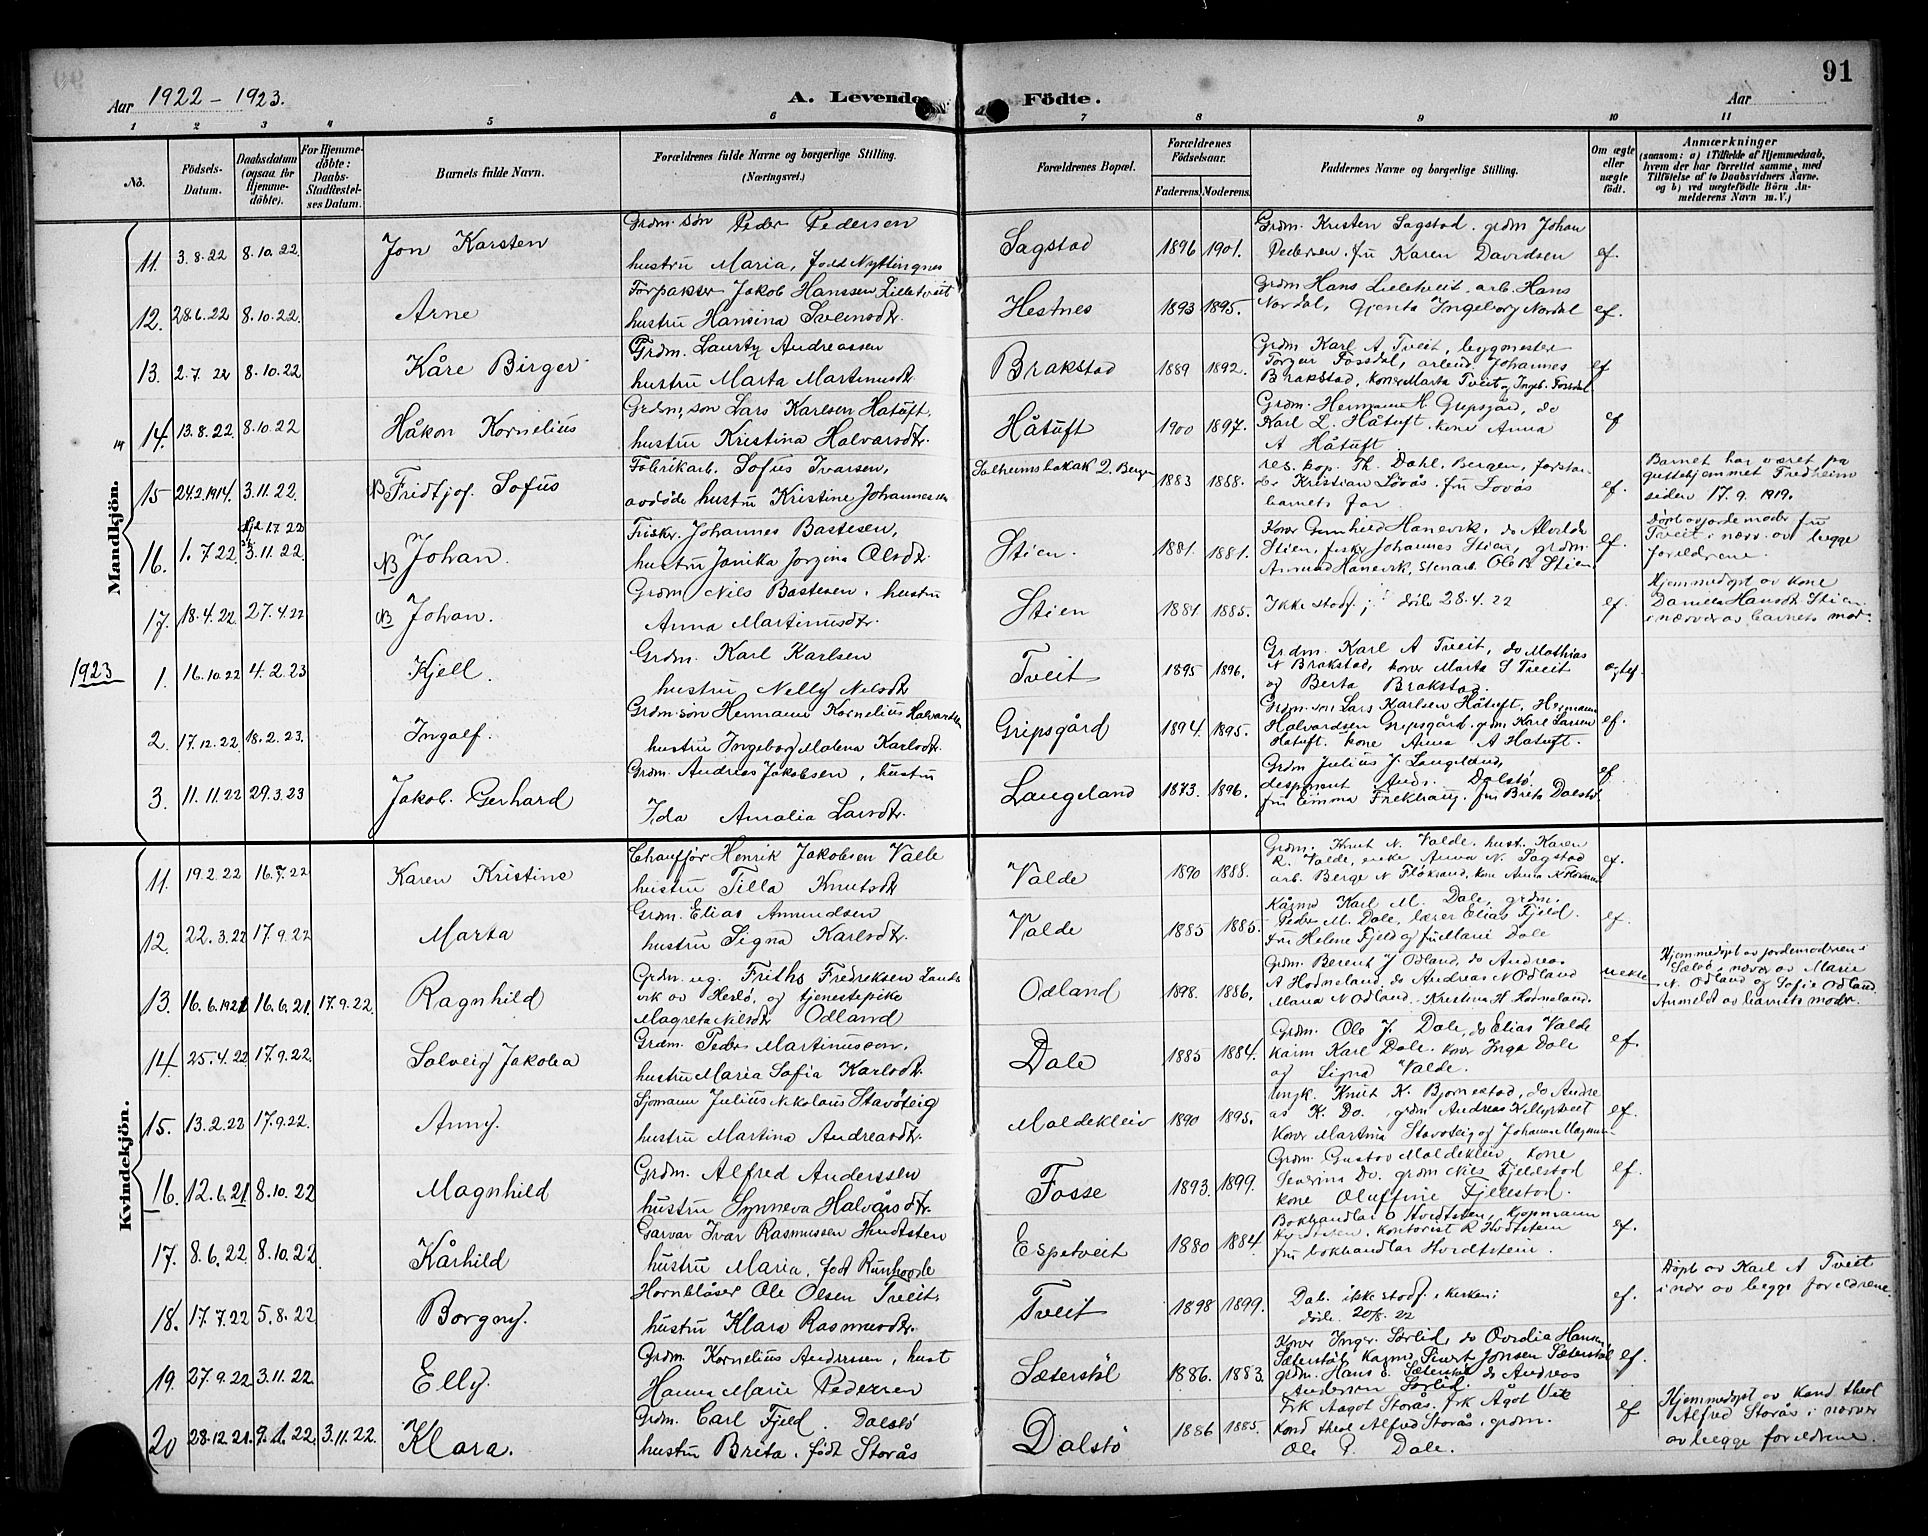 Aar 1922 - 1923.
A. Levende Födte.
91
Aar
1 2 3 4 5 6 7 8 9 10 11
No.
Födsels-Datum.
Daabsdatum (ogsaa for Hjemme-döbte).
For Hjemme-döbte: Daabs-Stadfæstel-ses Datum.
Barnets fulde Navn.
Forældrenes fulde Navne og borgerlige Stilling.
(Næringsvei.)
Forældrenes Bopæl.
Forældrenes Födselsaar.
Faderens. Moderens.
Faddernes Navne og borgerlige Stilling.
Om ægte eller uægte födt.
Anmærkninger
(saasom: a) i Tilfælde af Hjemmedaab, hvem der har forrettet samme, med Tilföielse af to Daabsvidners Navne. og b) ved uægtefödte Börn An-melderens Navn m. V.)
Mandkjön.
11. 3.8.22 8.10.22. Jon Karsten
Grdm. søn Peder Pedersen
hustru Maria, født Nyttingnes
Sagstad 1896 1901.
Grdm. Kristen Sagstad. grdm Johan
Pedersen. fru Karen Davidsen
ef.
12. 28.6.22 8.10.22. Arne
Forpakter Jakob Hanssen Lilletveit
hustru Hansina Svensdtr.
Hestnes 1893 1895.
Grdm Hans Liletveit. arb. Hans
Nordal, Gjenta Ingeborg Nordal
ef.
13. 2.7.22 8.10.22 Kåre Birger
Grdm. Lauritz Andreassen
hustru Marta Martinusdtr
Brakstad 1889 1892.
Grdm Karl A Tveit, bygmester
Torger Fossdal, arbeid. Johannes
Brakstad, koner Marta Tveit og Ingeb. Fossdal
ef
14. 13.8.22. 8.10.22 Håkon Kornelius
Grdm. søn Lars Karlsen Hatuft.
hustru Kristina Halvarsdtr.
Håtuft 1900 1897.
Grdm. Hermann H. Gripsgård, do
Karl L. Håtuft. kone Anna
A Håtuft.
ef
15 24.2.1914. 3.11.22. NB Fridtjof Sofus
Fabrikarb. Sofus Ivarsen,
avdøde hustru Kristine Johannesen
Solheimsbakak 2. Bergen 1883 1888
res. kap. Th. Dahl, Bergen, forstan
der Kristian Løvås. fru Løvås
barnets far.
ef.
Barnet har været på
guttehjemmet Fredheim
siden 17.9.1919.
16. 1.7.22 3.11.22 NB Johan.
Fisker. Johannes Bastesen,
hustru Janika Jorgina Olsdtr.
Stien. 1881. 1881.
Koner Gunhild Hanevik, do Alvilde
Stien, fisker Johannes Stien, grdm.
Amund Hanevik, stenarb. Ole B. Stien
ef.
Døpt av jordemoder fru
Tveit i nærv. av begge
foreldrene.
17. 18.4.22. 27.4.22 NB Johan.
Grdm Nils Bastesen. hustru
Anna Martinusdtr.
Stien 1881 1885.
Ikke stadf.; døde 28.4.22
ef.
Hjemmedøpt av kone
Daniella Hansdtr. Stien
i nærver av barnets mor.
1923
1. 16.10.22 4.2.23 Kjell.
Grdm. Karl Karlsen
hustru Nelly Nilsdtr
Tveit 1895 1896.
Grdm. Karl A Tveit, do Mathias
N Brakstad, koner Marta S Tveit
og Berta Brakstad.
2. 17.12.22 18.2.23. Ingolf.
Grdm. søn Hermann Kornelius Halvardsen
hustru Ingeborg Malena Karlsdtr.
Gripsgård 1894. 1895.
Grdm. søn Lars Karlsen Håtuft, Hermann
Halvardsen Gripsgård. grdm Karl Larsen
Hatuft. kone Anna A Hatuft.
ef.
3. 11.11.22 29.3.23 Jakob. Gerhard
Grdm. Andreas Jakobsen, hustru
Ida Amalia Larsdtr.
Langeland 1873. 1896.
Grdm Julius J. Langeland,
disponent Andr. Dalstø
fru Emma Frekhaug. fru Brita Dalstø
ef
Kvindekjön.
11. 19.2.22 16.7.22 Karen Kristine
Chauffør Henrik Jakobsen Valle
hustru Tilla Knutsdtr
Valde 1890 1888.
Grdm. Knut N. Valde. hust. Karen
R. Valde, enke Anna N. Sagstad
arb. Berge N Fløksand, kone Anna
ef.
12. 22.3.22 17.9.22 Marta
Grdm. Elias Amundsen
hustru Signa Karlsdtr.
Valde 1885 1885.
Kårmd Karl M. Dale, grdm.
Peder M. Dale, lærer Elias Fjeld.
fru Helene Fjeld og fru Marie Dale
ef.
13. 16.6.1921 16.6.21. 17.9.22. Ragnhild
Grdm. ug. Friths Fredreksen Lands
vik av Herlø, og tjenestepike
Magreta Nilsdtr Odland
Odland 1898. 1886.
Grdm. Berent J Odland, do Andreas
A Hodneland, do Andreas N Odland
Maria N Odland. Kristina H Hodneland.
uekte
Hjemmedøpt av jordemoderen i
Sælø, i nærver av Marie
N. Odland og Sofie Odland
Anmeldt av barnets moder.
14. 25.4.22 17.9.22. Solveig Jakobea
Grdm. Peder Martinussen,
hustru Maria Sofia Karlsdtr.
Dale 1885 1884.
Grdm. Ole J. Dale, do Elias Valde
kårm Karl Dale. koner Inga Dale
og Signa Valde.
ef.
15. 13.2.22 17.9.22. Anny.
Sjømann Julius Nikolaus Stavøteig
hustru Martina Andreasdtr.
Moldekleiv 1890 1895.
Ungk. Knut K. Bjørnestad, do Andre
as K. Do. grdm Andreas
Koner Martina Stavøteig og Johanna
ef.
16. 12.6.21 8.10.22 Magnhild
Grdm. Alfred Anderssen
hustru Synneva Halvårsdtr.
Fosse 1893. 1899.
Grdm. Gustav Moldekleiv, kone
Severina Do. grdm Nils Fjellstad
kone Oluffine Fjellstad.
ef.
17. 8.6.22 8.10.22 Kårhild
Garver Ivar Rasmussen Hvidtsten
hustru Maria, født Runhovde
Espetveit 1880 1884.
Bokhandlar O Hvidtsten, Kjøpmann
Hvidtsten, kontorist R Hvidtstein
fru bokhandlar Hvidtstein.
ef.
18. 17.7.22 5.8.22 Borgny.
Hornblåser Ole Olsen Tveit.
hustru Klara Rasmusdtr.
Tveit 1898 1899.
Dab. ikke stadf. i kirken:
døde 20/8.22
ef.
Døpt av Karl A Tveit
i nær av begge foreldrene.
19. 27.9.22 3.11.22. Elly.
Grdm. Kornelius Anderssen, hust
Hanna Marie Pedersen
Sæterstøl 1886. 1883.
Koner Inger Sørlid, do Ovedia Hansen
Sæterstøl Kårmd Sivert Jonsen Sæterstøl
grdm. Hans S. Sæterstøl do Andreas
Andersen Sørlid.
ef.
20 28.12.21. 9.1.22. 3.11.22. Klara.
Grdm. Carl Fjeld. Dalstø
hustru Brita. født Storås
Dalstø 1886 1885.
Frk Aagot Storås. frk Ågot Vik
Kand theol Alfred Storås, grdm.
Ole P. Dale.
ef
Hjemmedøpt av Kand. theol
Alfred Storås i nærver
av begge foreldrene.